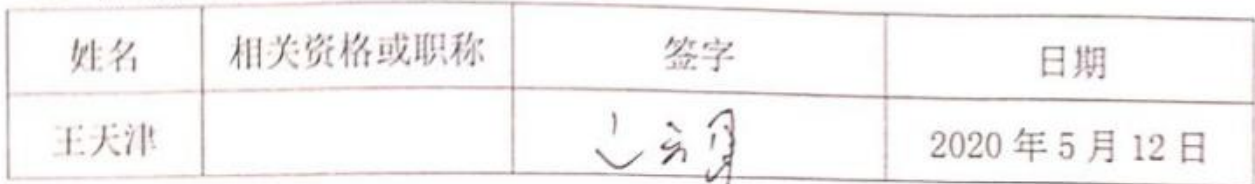 姓名 相关资格或职称 签字 日期
王天津 2020 年 5 月 12 日